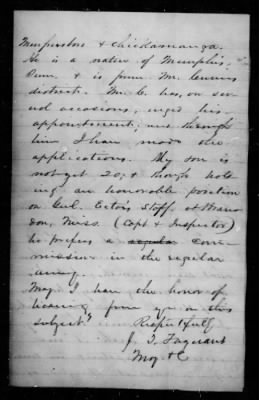 Murfreesboro & Chickamauga.
He is a native of Memphis,
Tenn. & is from Mr. Currins
district. Mr. C. has, on sev
eral occasions, urged his
appointment, and through
him I have made the
applications. My son is
not yet 20; & though hold
ing an honorable position
on Genl. Ector's Staff at Bran
don, Miss. (Capt & Inspector)
he prefers a regular com
mission in the regular
army.
May I have the honor of
hearing from you on this
subject?
Respectfully
J. T.
Maj &